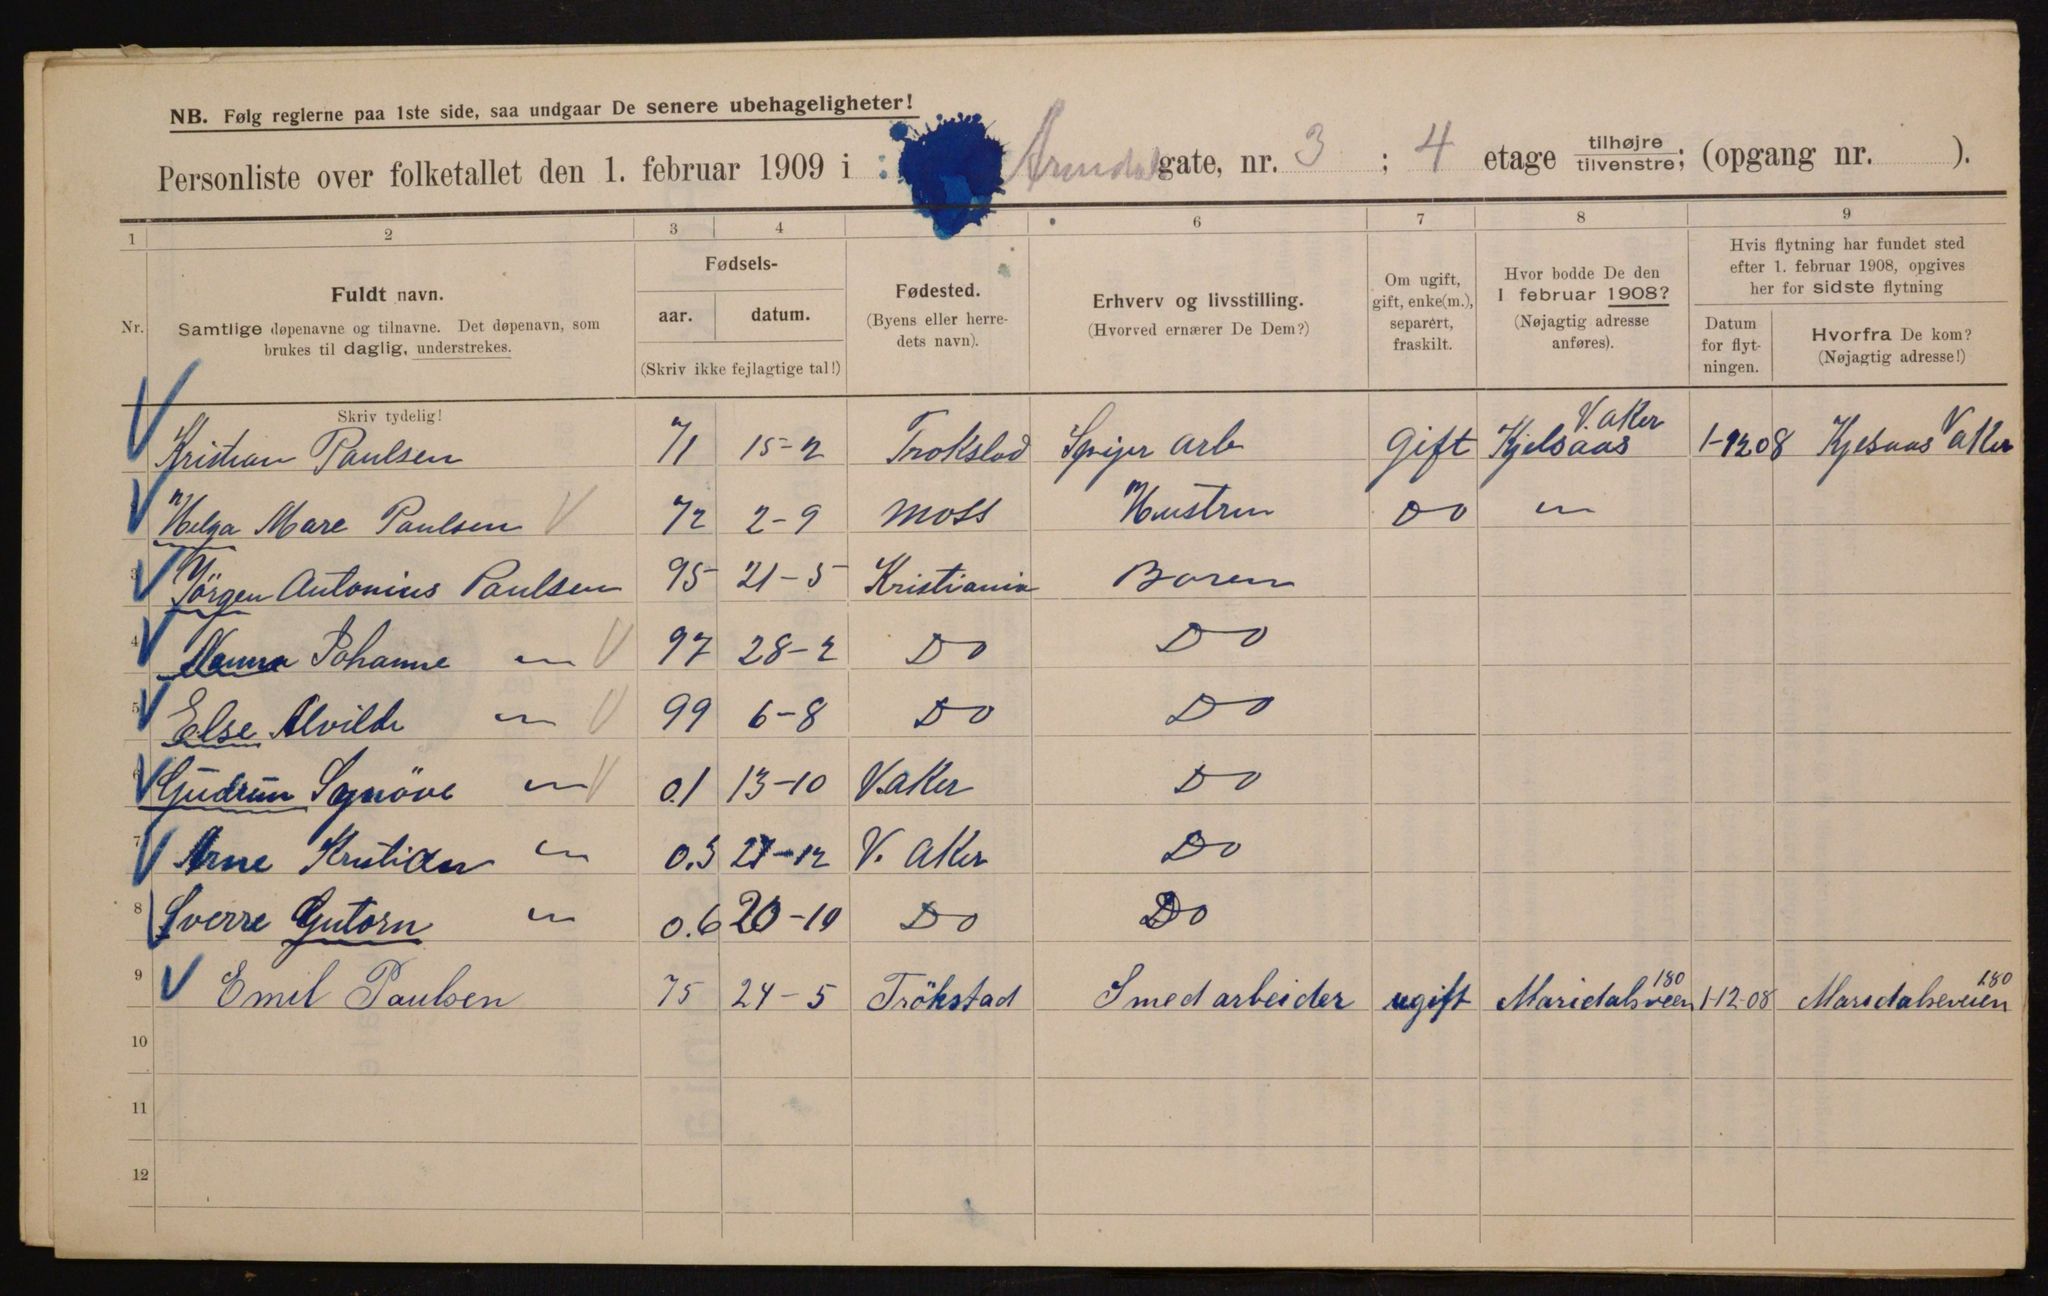 NB. Følg reglerne paa 1ste side, saa undgaar De senere ubehageligheter!
Personliste over folketallet den 1. februar 1909 i : Arendals gate, nr. 3 ; 4 etage tilhøjre/tilvenstre; (opgang nr. ).
1 2 3 4 6 7 8 9
Nr.
Fuldt navn.
Samtlige døpenavne og tilnavne. Det døpenavn, som
brukes til daglig, understrekes.
Fødsels-
aar. datum.
(Skriv ikke fejlagtige tal!)
Fødested.
(Byens eller herre-
dets navn).
Erhverv og livsstilling.
(Hvorved ernærer De Dem?)
Om ugift,
gift, enke(m.),
separert,
fraskilt.
Hvor bodde De den
1 februar 1908?
(Nøjagtig adresse
anføres).
Hvis flytning har fundet sted
efter 1. februar 1908, opgives
her for sidste flytning
Datum
for flyt-
ningen.
Hvorfra De kom?
(Nøjagtig adresse!)
Skriv tydelig!
Kristian Paulsen 71 15-2 Trokstad Spiger arb Gift Kjelsaas V. Aker 1-12 08 Kjelsaas V Aker
Helga Mare Paulsen 72 2-9 Moss Hustru Do "
3 Jörgen Antonius Paulsen 95 21-5 Kristiania Baren
4 Nanna Johanne " 97 28-2 Do Do
5 Else Alvilde " 99 6-8 Do Do
6 Gudrun Synöve " 0.1 13-10 V. Aker Do
7 Arne Kristian " 0.3 21-12 V. Aker Do
8 Sverre Gutorn " 0.6 20-10 Do Do
9 Emil Paulsen 75 24-5 Trökstad Smedarbeider ugift Maridalsveen 180 1-12-08 Maridalsveien 180
10
11
12